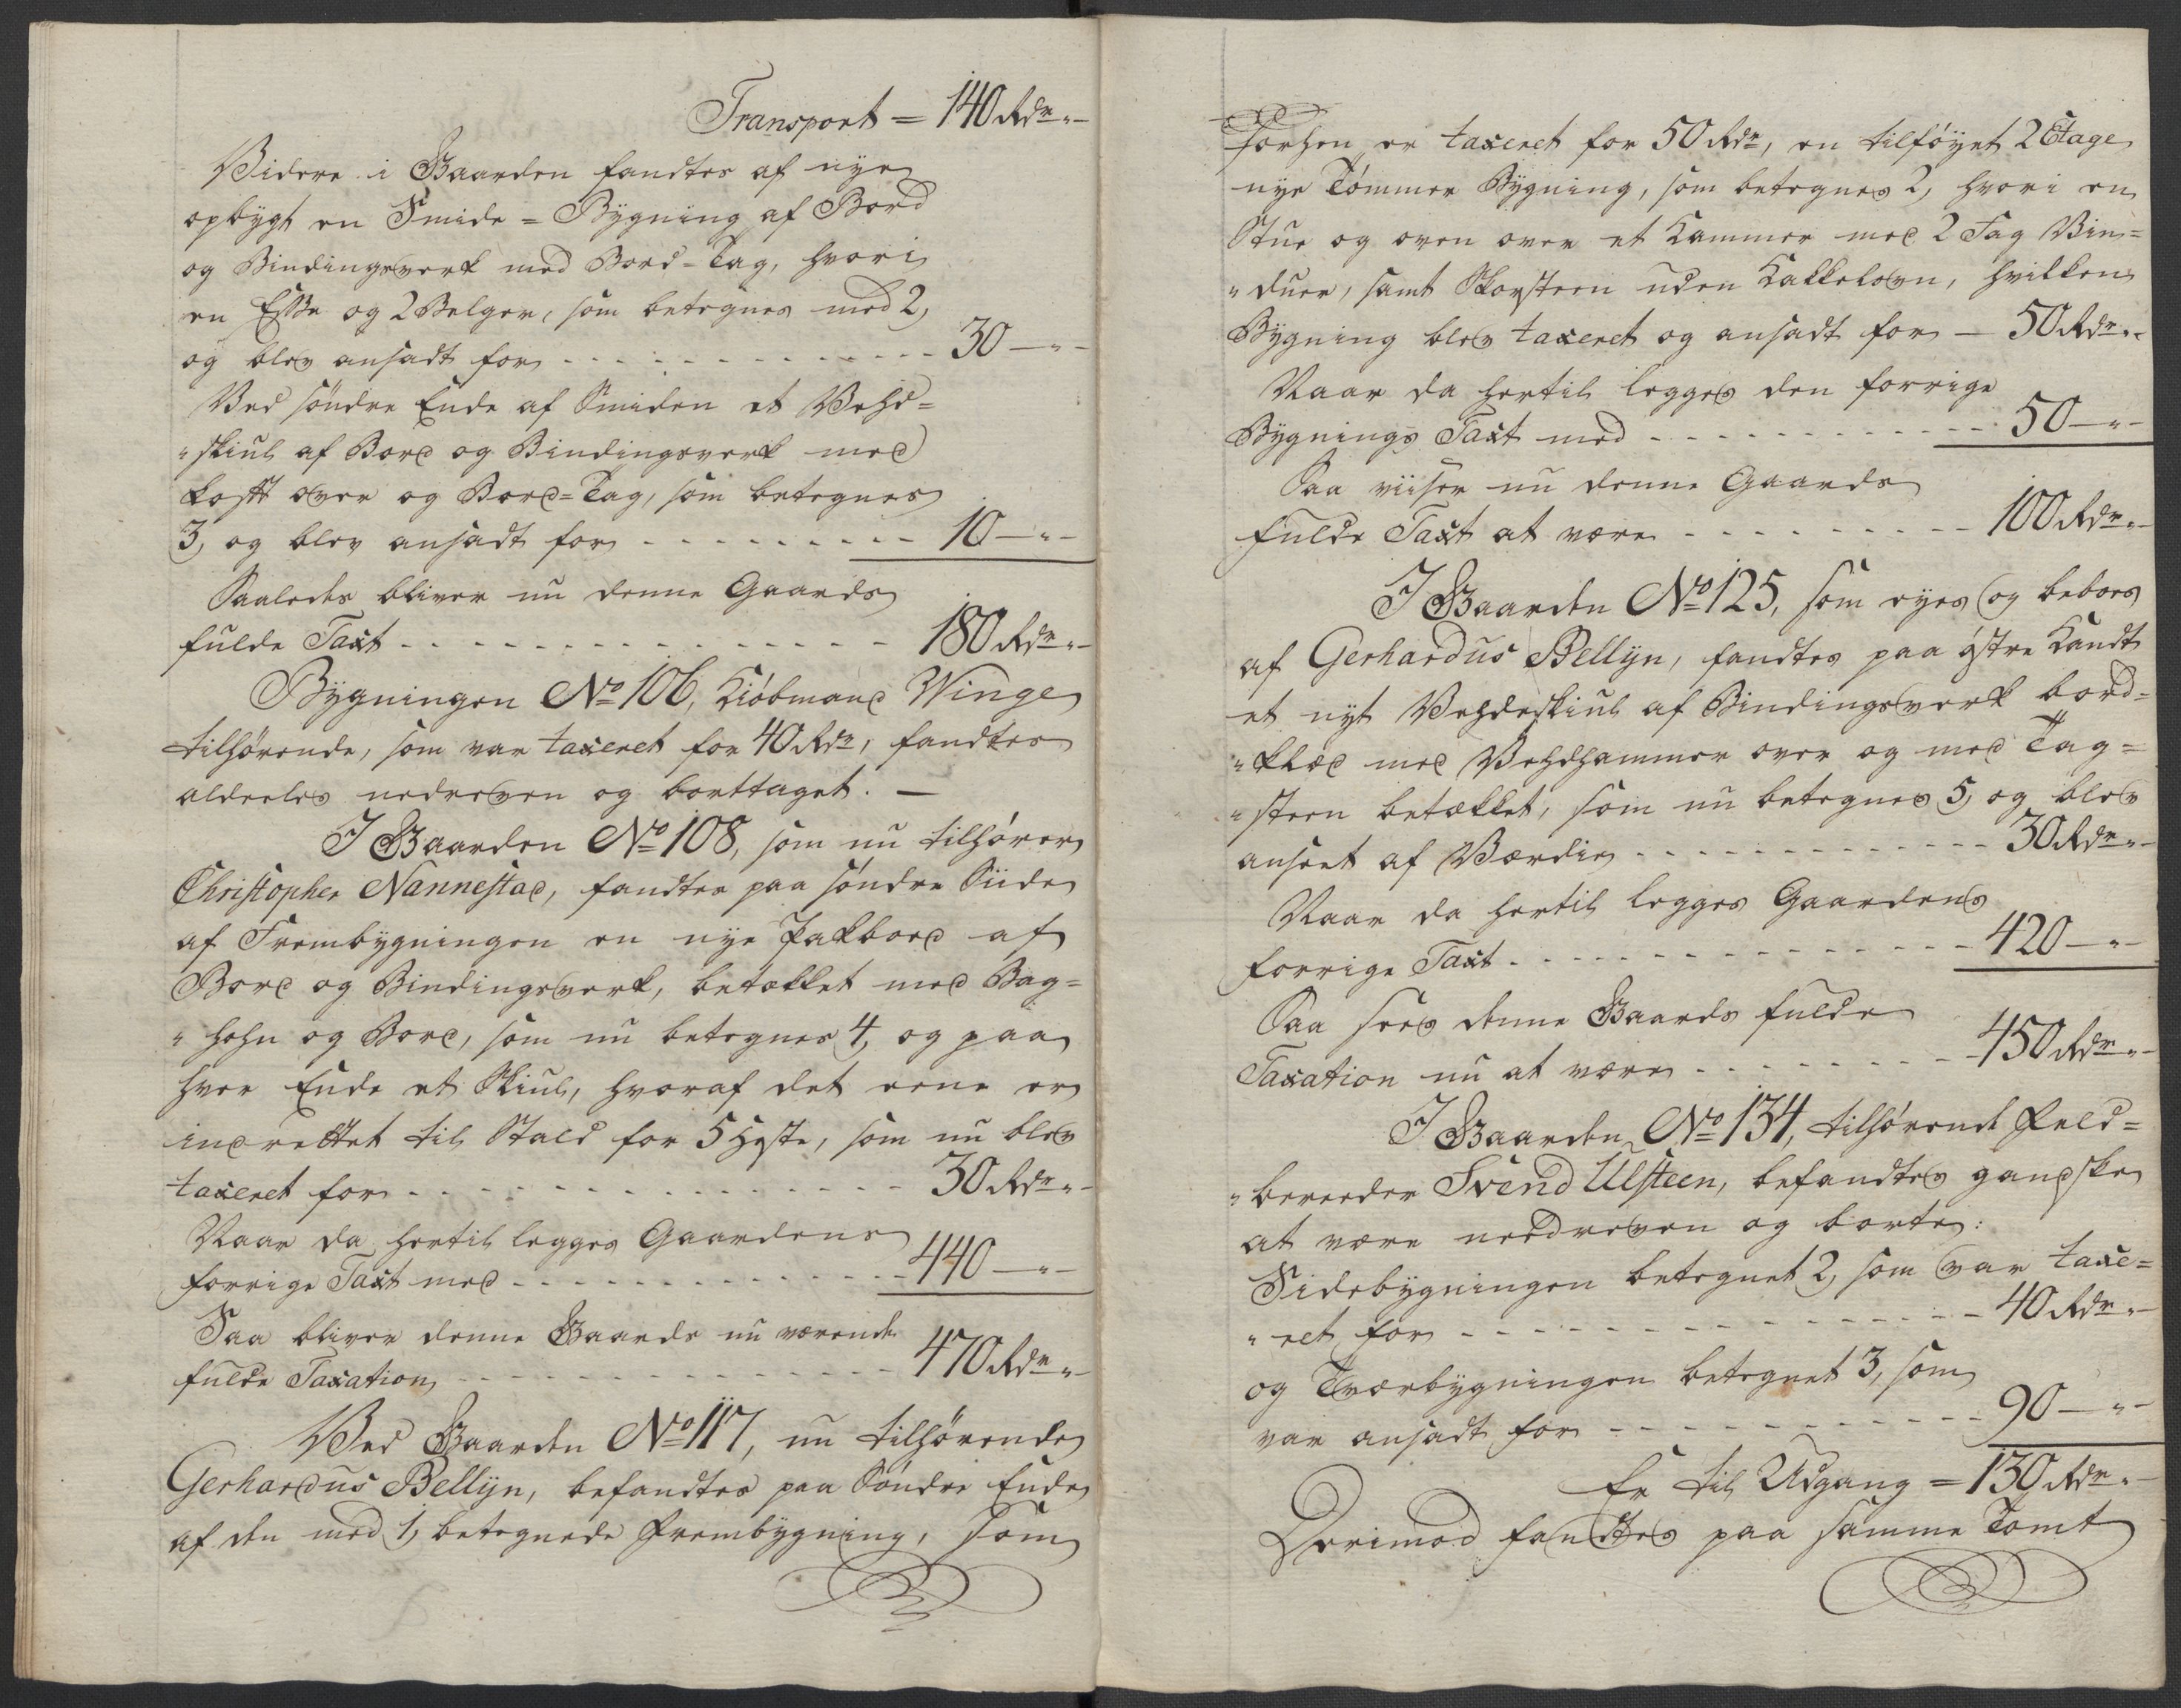 Transport = 140 Rdr "-
Videre i Gaarden fandtes af nye
opbygt en Smide = Bygning af Bord
og Bindingsverk med Bord-Tag, hvori
en Esse og 2 Belger, som betegnes med 2,
og blev ansadt for - - - 30 - " -
Ved søndre Ende af Smiden et Vehd=
"skiul af Bord og Bindingsverk med
Lofft over og Bord=Tag, som betegnes
3, og blev ansadt for - - - 10 - " -
Saaledes bliver nu denne Gaards
fulde Taxt - - - 180 Rdr "-
Bygningen No 106, Kiøbmand Winge
tilhørende, som var taxeret for 40 Rdr, fandtes
aldeeles nedreven og borttaget. -
I Gaarden No 108, som nu tilhører
Christopher Nannestad, fandtes paa søndre Siide
af Frembygningen en nye Pakboed af
Bord og Bindingsverk, betækket med Bag=
"hohn og Bord, som nu betegnes 4, og paa
hver Ende et Skiul, hvoraf det eene er
indrettet til Stald for 5 Heste, som nu blev
taxeret for - - - 30 Rdr "-
Naar da hertil legges Gaardens
forrige Taxt med - - - 440 - " -
Saa bliver denne Gaards nu værende
fulde Taxation - - - 470 Rdr "-
Ved Gaarden No 117, nu tilhørende
Gerhardus Bellijn, befandtes paa Søndre Ende
af den med 1, betegnede Frembygning, som
forhen er taxeret for 50 Rdr, en tilføyet 2 Etage
nye Tømmer Bygning, som betegnes 2, hvori en
Stue og oven over et Kammer med 2 Fag Vin=
"duer, samt Skorsteen uden Kakkelovn, hvilken
Bygning blev taxeret og ansadt for - 50 Rdr "-
Naar da hertil legges den forrige
Bygnings Taxt med - - - 50 - " -
Saa viiser nu denne Gaards
fulde Taxt at være - - - 100 Rdr "-
I Gaarden No 125, som eyes og beboes
af Gerhardus Bellijn, fandtes paa østre Kandt
et nyt Vehdeskiul af Bindingsverk bord=
"klæd med Vehdhammer over og med Tag=
"steen betækket, som nu betegnes 5, og blev
anseet af Værdie - - - 30 Rdr "-
Naar da hertil legges Gaardens
forrige Taxt - - - 420 - " -
Saa sees denne Gaards fulde
Taxation nu at være - - - 450 Rdr "-
I Gaarden No 134, tilhørende Feld=
"bereeder Svend Ulsteen, befandtes gandske
at være needreven og borte:
Sidebygningen betegnet 2, som var taxe=
"ret for - - - 40 Rdr "-
og Tværbygningen betegnet 3, som
var ansadt for - - - 90 - " -
Er til Udgang = 130 Rdr "-
Derimod fandtes paa samme Tomt